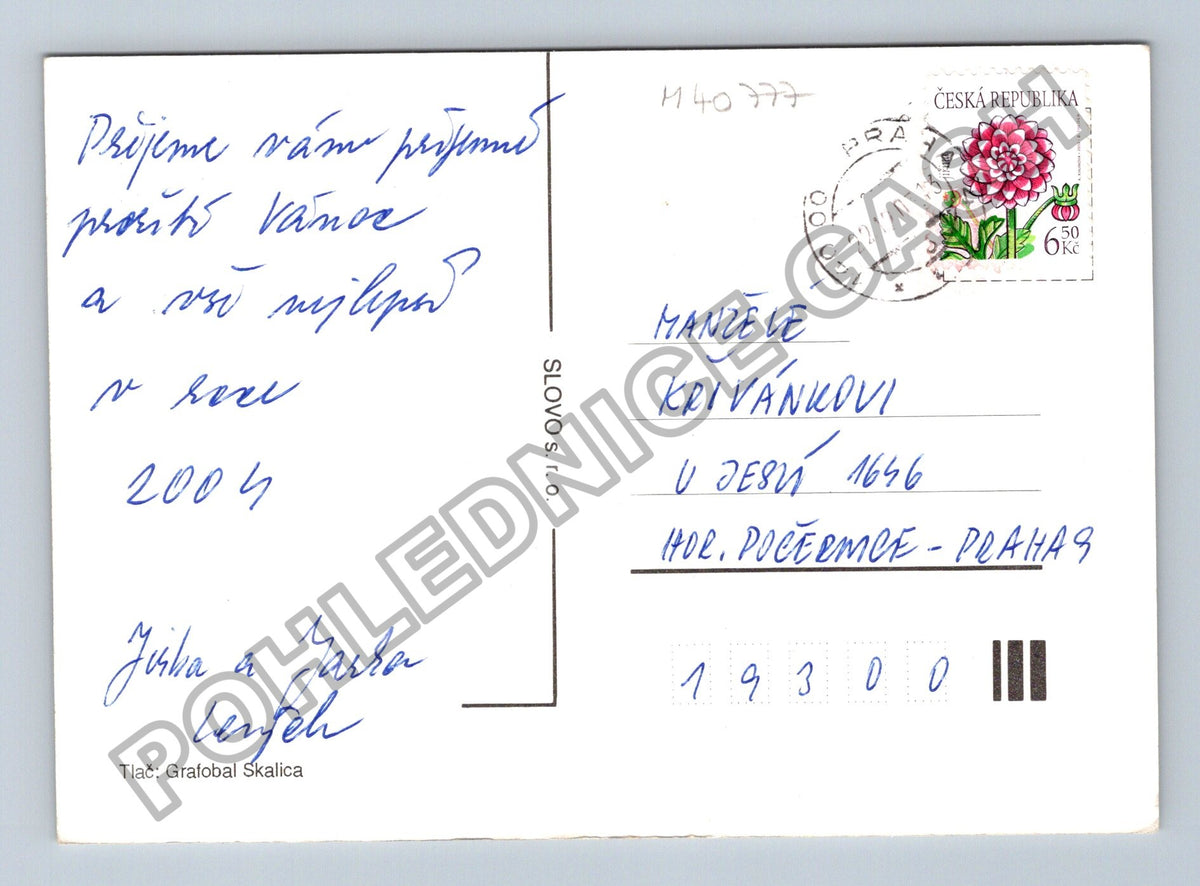 Přejeme vám příjemné
prožití Vánoc
a vše nejlepší
v roce
2004
Jirka a Jarka
Tlač: Grafobal Skalica
SLOVO s. r. o.
M40777
ČESKÁ REPUBLIKA
6 50
Kč
PRAHA
MANŽELÉ
KŘIVÁNKOVI
U JESLÍ 1646
HOR. POČERNICE - PRAHA 9
19300
POHLEDNICE-GASH